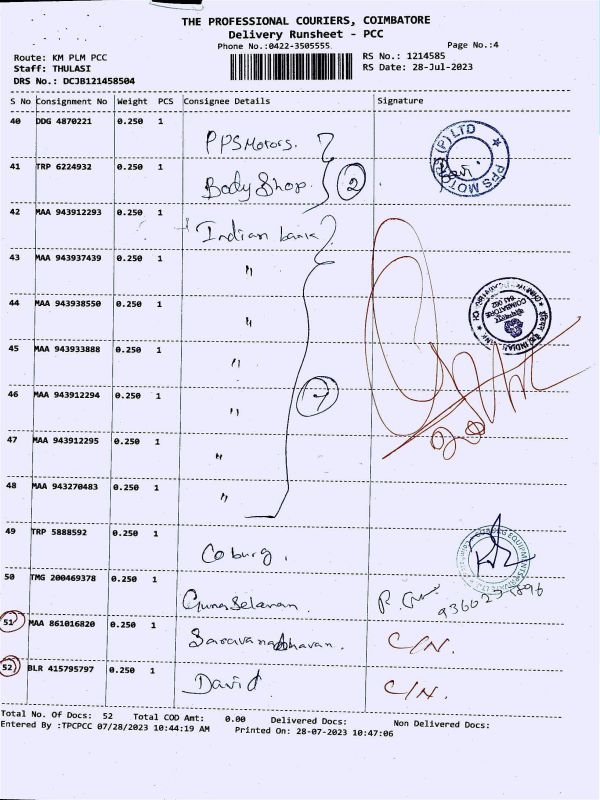 THE PROFESSIONAL COURIERS, COIMBATORE
Delivery Runsheet - PCC
Phone No.:0422-3505555
Page No.:4
Route: KM PLM PCC
RS No.: 1214585
Staff: THULASI
RS Date: 28-Jul-2023
DRS No.: DCJB121458504
S No Consignment No Weight PCS Consignee Details Signature
40 DDG 4870221 0.250 1 PPS Motors.
41 TRP 6224932 0.250 1 Body Shop. 2
42 MAA 943912293 0.250 1 Indian bank
43 MAA 943937439 0.250 1 "
44 MAA 943938550 0.250 1 "
45 MAA 943933888 0.250 1 "
46 MAA 943912294 0.250 1 " 7
47 MAA 943912295 0.250 1 "
48 MAA 943270483 0.250 1 "
49 TRP 5888592 0.250 1 Coburg.
50 TMG 200469378 0.250 1 Gunaselavan.
51 MAA 861016820 0.250 1 Saravanabhavan. C/N.
52 BLR 415795797 0.250 1 David. C/N.
Total No. Of Docs: 52 Total COD Amt: 0.00 Delivered Docs: Non Delivered Docs:
Entered By :TPCPCC 07/28/2023 10:44:19 AM Printed On: 28-07-2023 10:47:06